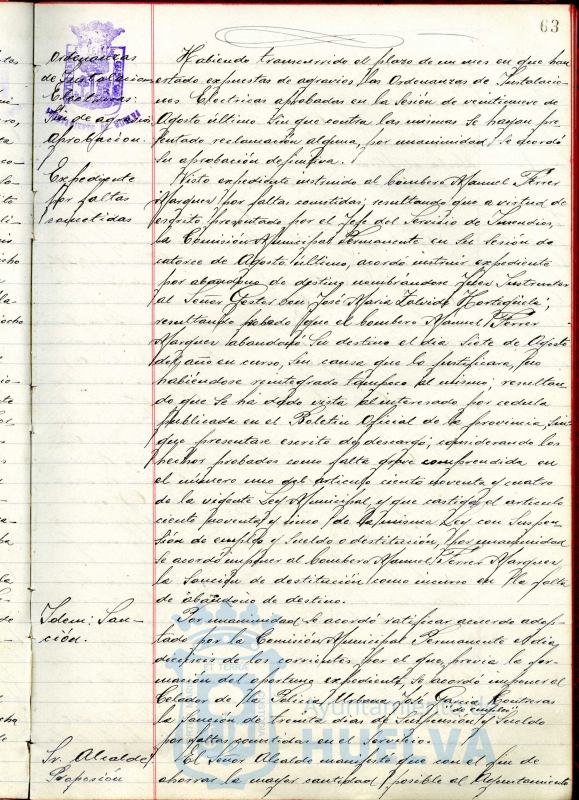 63
Ordenanzas
de Instalaciones
Eléctricas:
Fin de agravios
Aprobación.
Habiendo transcurrido el plazo de un mes en que han
estado expuestas de agravios las Ordenanzas de Instalacio-
nes Eléctricas aprobadas en la Sesión de veintinueve de
Agosto último sin que contra las mismas se hayan pre-
sentado reclamación alguna, por unanimidad, se acordó
su aprobación definitiva.
Expediente
por faltas
cometidas
Visto expediente instruido al bombero Manuel Ferrer
Marquez por faltas cometidas; resultando que a virtud de
escrito presentado por el Jefe del Servicio de Incendios,
la Comisión Municipal Permanente en su sesión de
catorce de Agosto último, acordó instruir expediente
por abandono de destino nombrándose Juez Instructor
al Señor Gestor Don José María
resultando probado que el bombero Manuel Ferrer
Marquez abandonó su destino el día siete de Agosto
del año en curso, sin causa que lo justificara, no
habiéndose reintegrado tampoco al mismo; resultan-
do que se ha dado vista al interesado por cedula
publicada en el Boletín Oficial de la provincia, sin
que presentase escrito de descargo; considerando los
hechos probados como falta grave comprendida en
el número uno del artículo ciento noventa y cuatro
de la vigente Ley Municipal y que castiga el artículo
ciento noventa y cinco de la misma Ley con Suspen-
sión de empleo y sueldo o destitución, por unanimidad
se acordó imponer al bombero Manuel Ferrer Marquez
la Sanción de destitución como incurso en la falta
de abandono de destino.
Idem: San-
ción.
Por unanimidad se acordó ratificar acuerdo adop-
tado por la Comisión Municipal Permanente el día
dieciseis de los corrientes por el que, previa la for-
mación del oportuno expediente, se acordó imponer al
Celador de la Policía Urbana José García Contreras
de empleo
la Sanción de treinta días de suspensión y sueldo
por faltas cometidas en el Servicio.
Sr. Alcalde
Proposición
El Señor Alcalde manifestó que con el fin de
ahorrar la mayor cantidad posible el Ayuntamiento
Ayuntamiento de
HUELVA